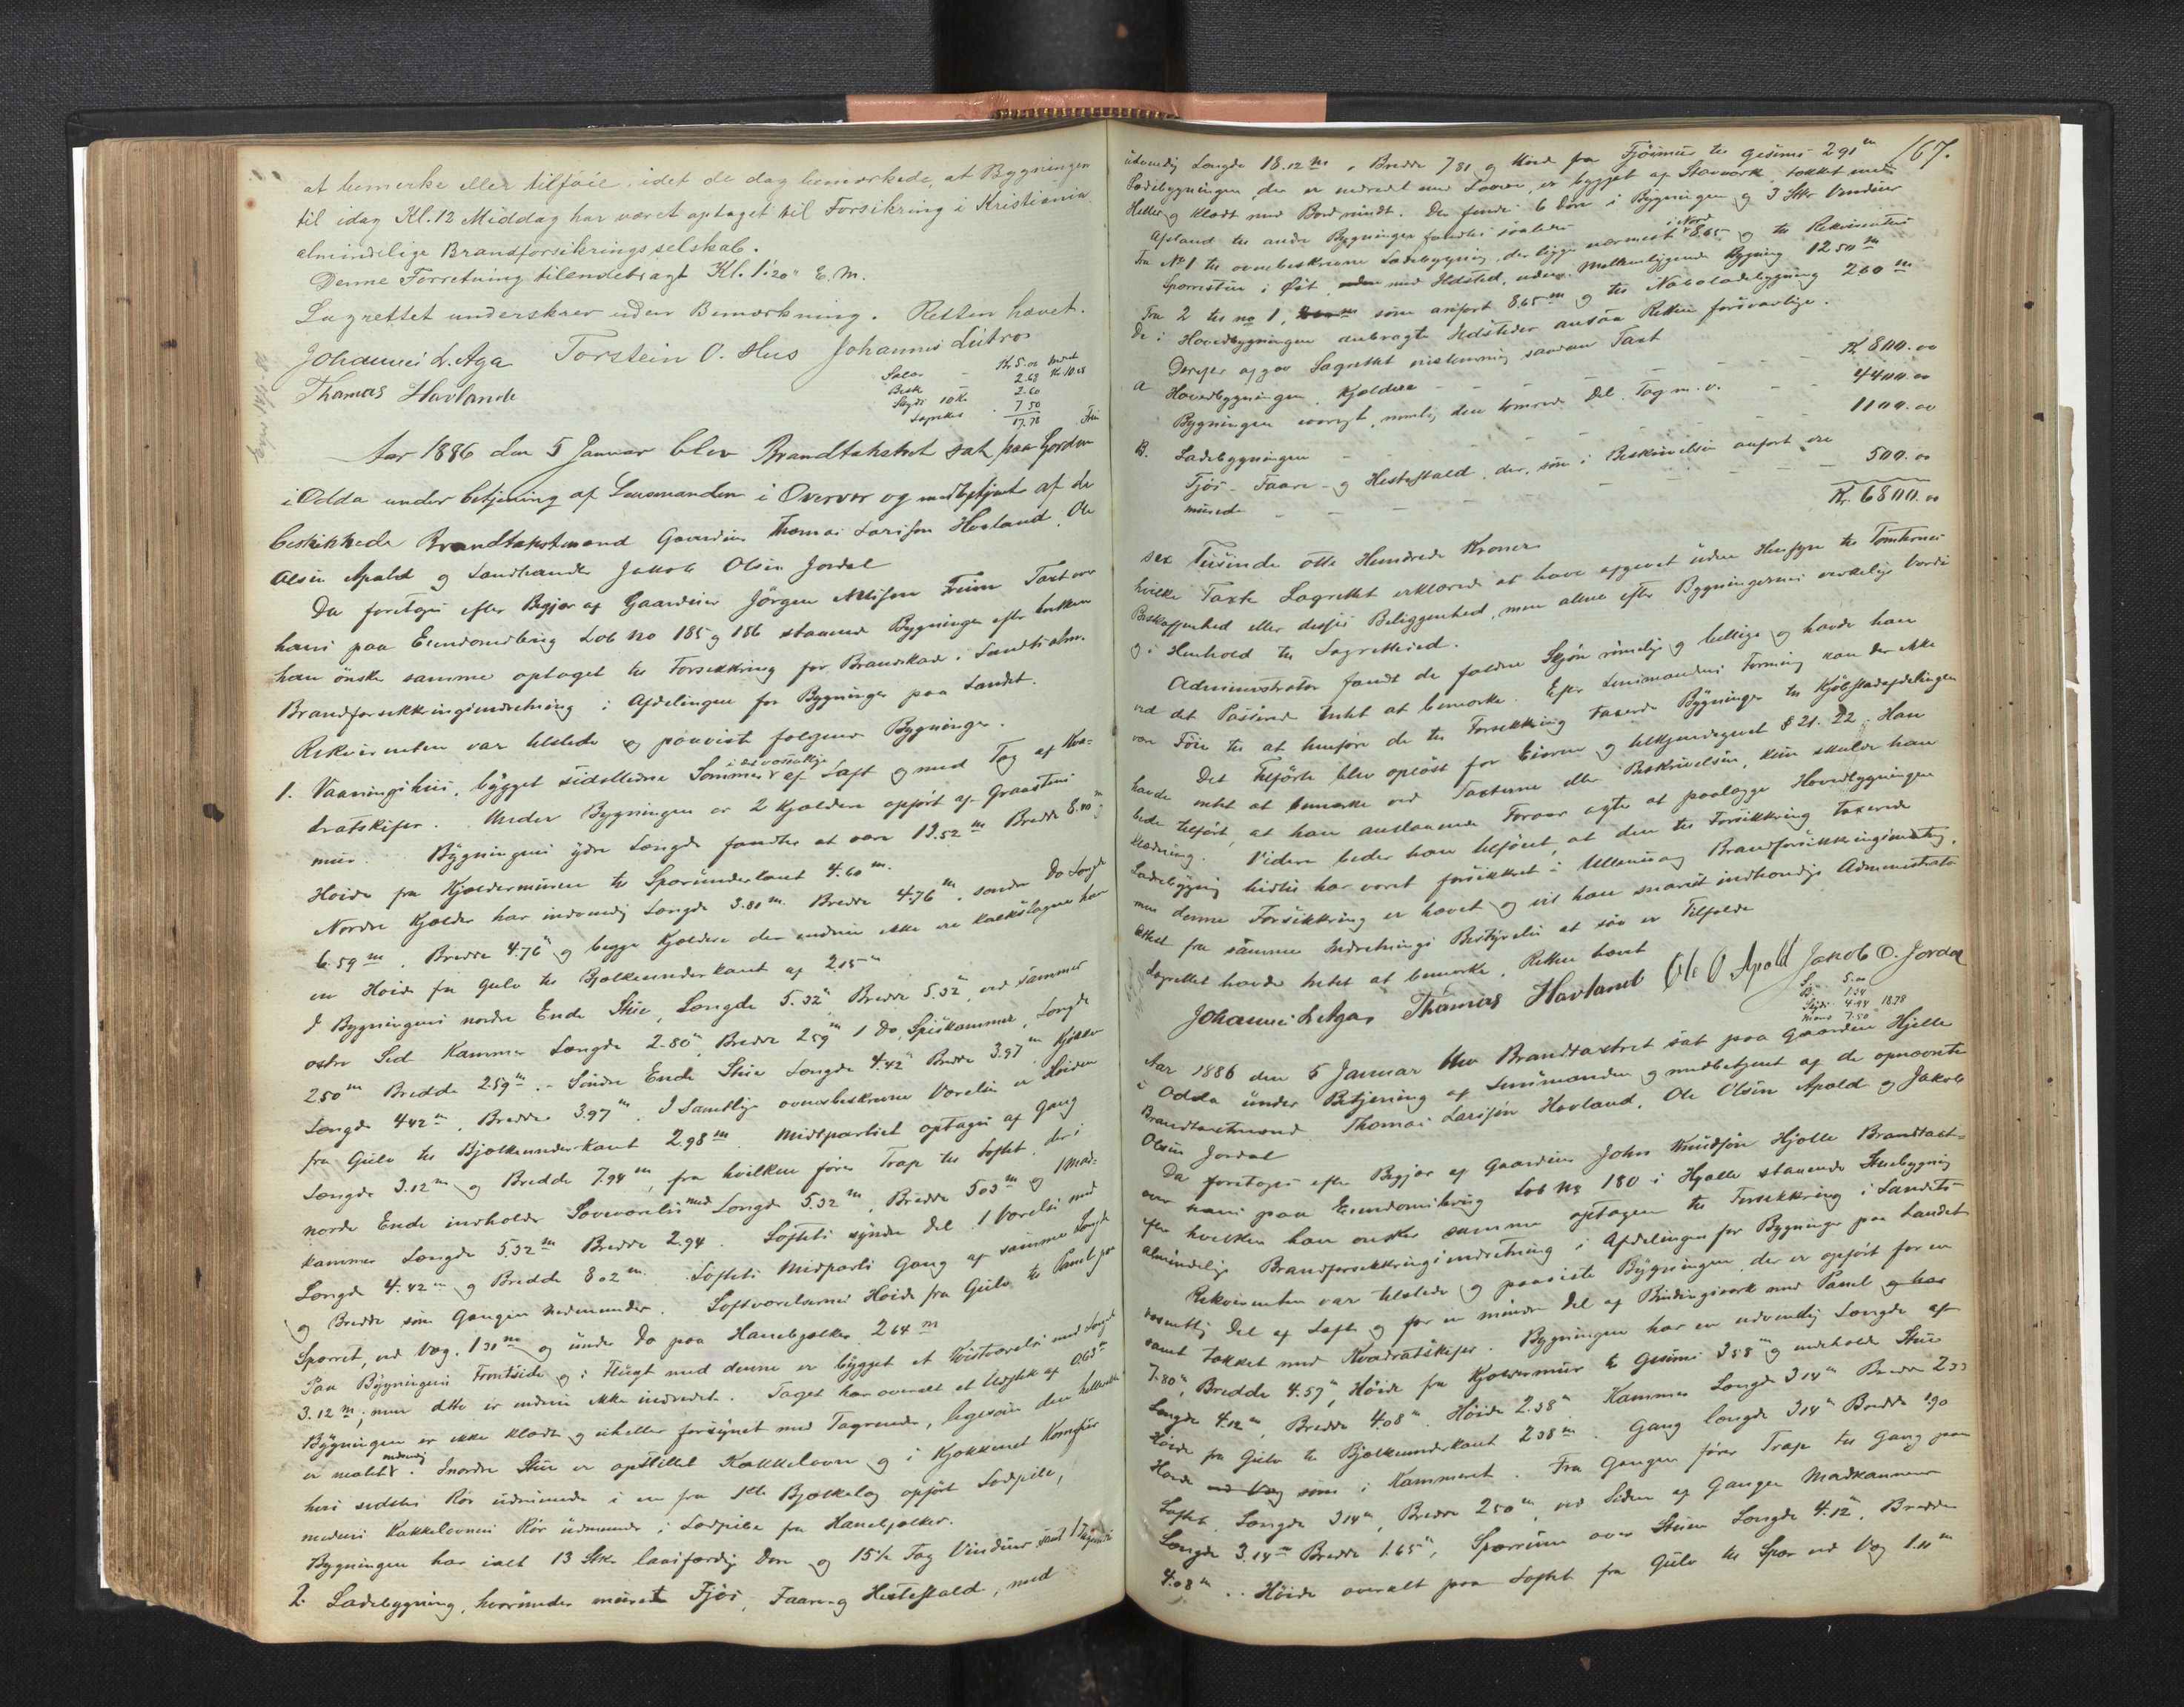 at bemerke eller tilføie, idet de dog bemærkede, at Bygningen
til idag Kl. 12 Middag har været optaget til Forsikring i Kristiania
almindelige Brandforsikringsselskab.
Denne Forretning tilendebragt Kl. 1'20" E.M.
Lagrettet underskrev uden Bemærkning. Retten hævet.
Johannes L. Aga Torstein O. Hus Johannes Lutro
Thomas Havland
Salær - Kr 5.00
Besk 2.68
Skyds 10 Km 2.60
Lagrettet 7.50
17.78
Aar 1886 den 5 Januar blev Brandtakstret sat paa Gorden
i Odda under betjening af Lensmanden i og medbetjent af de
beskikkede Brandtakstmænd Gaardm Thomas Larssen Hovland, Ole
Olsen Apold og Landhandler Jakob Olsen Jordal
Da foretoges efter Begjær af Gaardeier Jörgen Freim Taxt over
hans paa Eiendomsbrug Löb No 185 og 186 staaende Bygninger efter hvilken
han önsker samme optaget til Forsikkring for Brandskade i Landets alm.
Brandforsikkringsindretning i Afdelingen for Bygninger paa Landet.
Rekvirenten var tilstede og paaviste følgende Bygninger.
1. Vaaningshus, bygget sidstledne Sommer i det væsentlige af Laft og med Tag af Kva-
dratskifer. Under Bygningen er 2 Kjældere opført af Graasteins
mur. Bygningens ydre Længde fandtes at være 13.52 m Bredde 8.40 m
Høide fra Kjældermuren til Sparunderkant 4.60 m.
Nordre Kjelder har indvendig Længde 3.81 m. Bredde 4.76 m, søndre Do Længde
6.59 m, Bredde 4.76 m og begge Kjældere der endnu ikke ere kalkslagne har
en Høide fra Gulv til Bjælkeunderkant af 2.15 m
I Bygningens nordre Ende Stue, Længde 5.32 m Bredde 5.32 m, ved sammes
østre Sid Kammer Længde 2.80 m, Bredde 2.59 m 1 Do, Spiskammer, Længde
2.50 m Bredde 2.59 m. - Søndre Ende Stue Længde 4.42 m Bredde 3.97 m Kjøkken
Længde 4.42 m, Bredde 3.97 m. I Samtlige ovenbeskrevne Værelser er Høiden
fra Gulv til Bjælkeunderkant 2.98 m. Midtpartiet optages af Gang
Længde 3.12 m og Bredde 7.94 m, fra hvilken fører Trap til Loftet, der i
nordre Ende indholder Soveværelse med Længde 5.32 m, Bredde 5.03 m og 1 Mad-
kammer Længde 5.32 m Bredde 2.94. Loftets syndre Del 1 Værelse med
Længde 4.42 m og Bredde 8.02 m. Loftets Midparti Gang af samme Længde
og Bredde som Gangen nedenunder. Loftsværelsernes Høide fra Gulv til Panel paa
Sparret, ved Væg. 1.31 m og under Do paa Hanebjælker 2.64 m
Paa Bygningens Frontside og i Flugt med denne er bygget et Kvistværelse med Længde
3.12 m; men dette er endnu ikke indredet. Taget har overalt et Udstik af 0.63 m
Bygningen er ikke klædt og uheller forsynet med Tagrende, ligesom den hellerikke
er malet indvendig. I nordre Stue er opstillet Kakkelovn og i Kjøkkenet Komfur
hvis sidstes Rør udmunde i en fra 1ste Bjælkelag opført Lodpibe,
medens Kakkelovnens Rør udmunde i Lodpibe fra Hanebjælker.
Bygningen har ialt 13 Stk. laasfærdig Døre og 15½ Fag Vinduer samt 1
2. Ladebygning, hvorunder muret Fjös, Faare og Hestestald, med
167.
udvendig Længde 18.12 m, Bredde 7.81 og Høide fra Fjösmur til Gesims 2.91 m
Ladebygningen, der er indredet med Laave, er bygget af Stavværk, tækket med
Heller og klædt med Bord rundt. Der findes 6 Döre i Bygningen og 3 Stkr Vinduer
Afstand til andre Bygninger fandtes saaledes
Fra No 1 til ovenbeskrevne Ladebygning, der ligger nærmest i Nord 8.65 og til Rekvirentens
i Øst, med Ildsted, uden Mellemliggende Bygning 12.50 m
Fra 2 til no 1, som anfört 8.65 m og til Naboladebygning 2.60 m
De i Hovedbygningen anbragte Ildsteder ansaa Retten forsvarlige.
Derefter afgav Lagrettet enstemmig saadan Taxt
A Hovedbygningen. Kjældere - - - - Kr 800.00
Bygningen iövrigt, nemlig den tömrede Del. Tag m.v. - - 4400.00
B. Ladebygningen - - - - 1100.00
Fjös- Faare- og Hestestald, der, som i Beskrivelsen anfört ere
murede - - - - - 500.00
Kr. 6800.00
sex Tusinde otte Hundrede Kroner
hvilke Taxt Lagrettet erklærede at have afgivet uden Hensyn til Tomternes
Beskaffenhed eller dessen Beliggenhed, men alene efter Bygningernes virkelige Værdi
og i Henhold til Lagretteed.
Administrator fandt de faldne Skjön rimelige og billige og havde han
ved det Passerede intet at bemærke. Efter Lensmandens Formening kan der ikke
være Föie til at henföre de til Forsikkring taxerede Bygninger til Kjöbstadafdelingen
Det Tilförte blev oplæst for Eieren og bekjendtgjort § 21. 22. Han
havde intet at bemærke ved Taxterne eller Beskrivelsen, kun skulde han
bede tilført, at han anstaaende Foraar agter at paalægge Hovedbygningen
Klædning. Videre beder han tilføiet, at den til Forsikkring taxerede
Ladebygning hidtil har været forsikkret i Ullensvang Brandforsikkringsindretning,
men denne Forsikkring er hævet og vil han snarest indhændige Administrator
Attest fra samme Indretnings Bestyrelse at saa er Tilfælde
Lagrettet havde Intet at bemerke. Retten hævet
Johannes L Aga Thomas Havland Ole O Apold Jakob O. Jordal
S. 5.00
B. 1.34
Skyds 4.94 18.78
Mænd 7.50
Aar 1886 den 5 Januar blev Brandtaxtret sat paa Gaarden Hjelle
i Odda under Betjening af Lensmanden og medbetjent af de opnævnte
Brandtaxtmænd Thomas Larssen Hovland, Ole Olsen Apold og Jakob
Olsen Jordal
Da foretoges efter Begjær af Gaardeier John Knudsen Hjelle Brandtaxt-
over hans paa Eiendomsbrug Löb No 180 i Hjelle staaende Stuebygning
efter hvilken han ønsker samme optagen til Forsikkring i Landets
almindelige Brandforsikkringsindretning i Afdelingen for Bygninger paa Landet
Rekvirenten var tilstede og paaviste Bygningen, der er opfört for en
væsentlig Del af Laft og for en mindre Del af Bindingsværk med Panel og har
samt tækket med Kvadratskifer. Bygningen har en udvendig Længde af
7.80 m, Bredde 4.57 m, Høide fra Kjeldermur til Gesims 3.58 m og indeholde Stue
Længde 4.12 m, Bredde 4.08 m. Høide 2.38 m Kammer Længde 3.14 m Bredde 2.33
Høide fra Gulv til Bjælkeunderkant 2.38 m. Gang længde 3.14 m Bredde 1.90
Høide som i Kammeret. Fra Gangen fører Trap til Gang paa
Loftet Længde 3.14 m, Bredde 2.50 m, ved Siden af Gangen Madkammer
Længde 3.14 m Bredde 1.65 m, Sparrum over Stuen Længde 4.12 m, Bredde
4.08 m. Høide overalt paa Loftet fra Gulv til Spær ved Væg 1.11 m